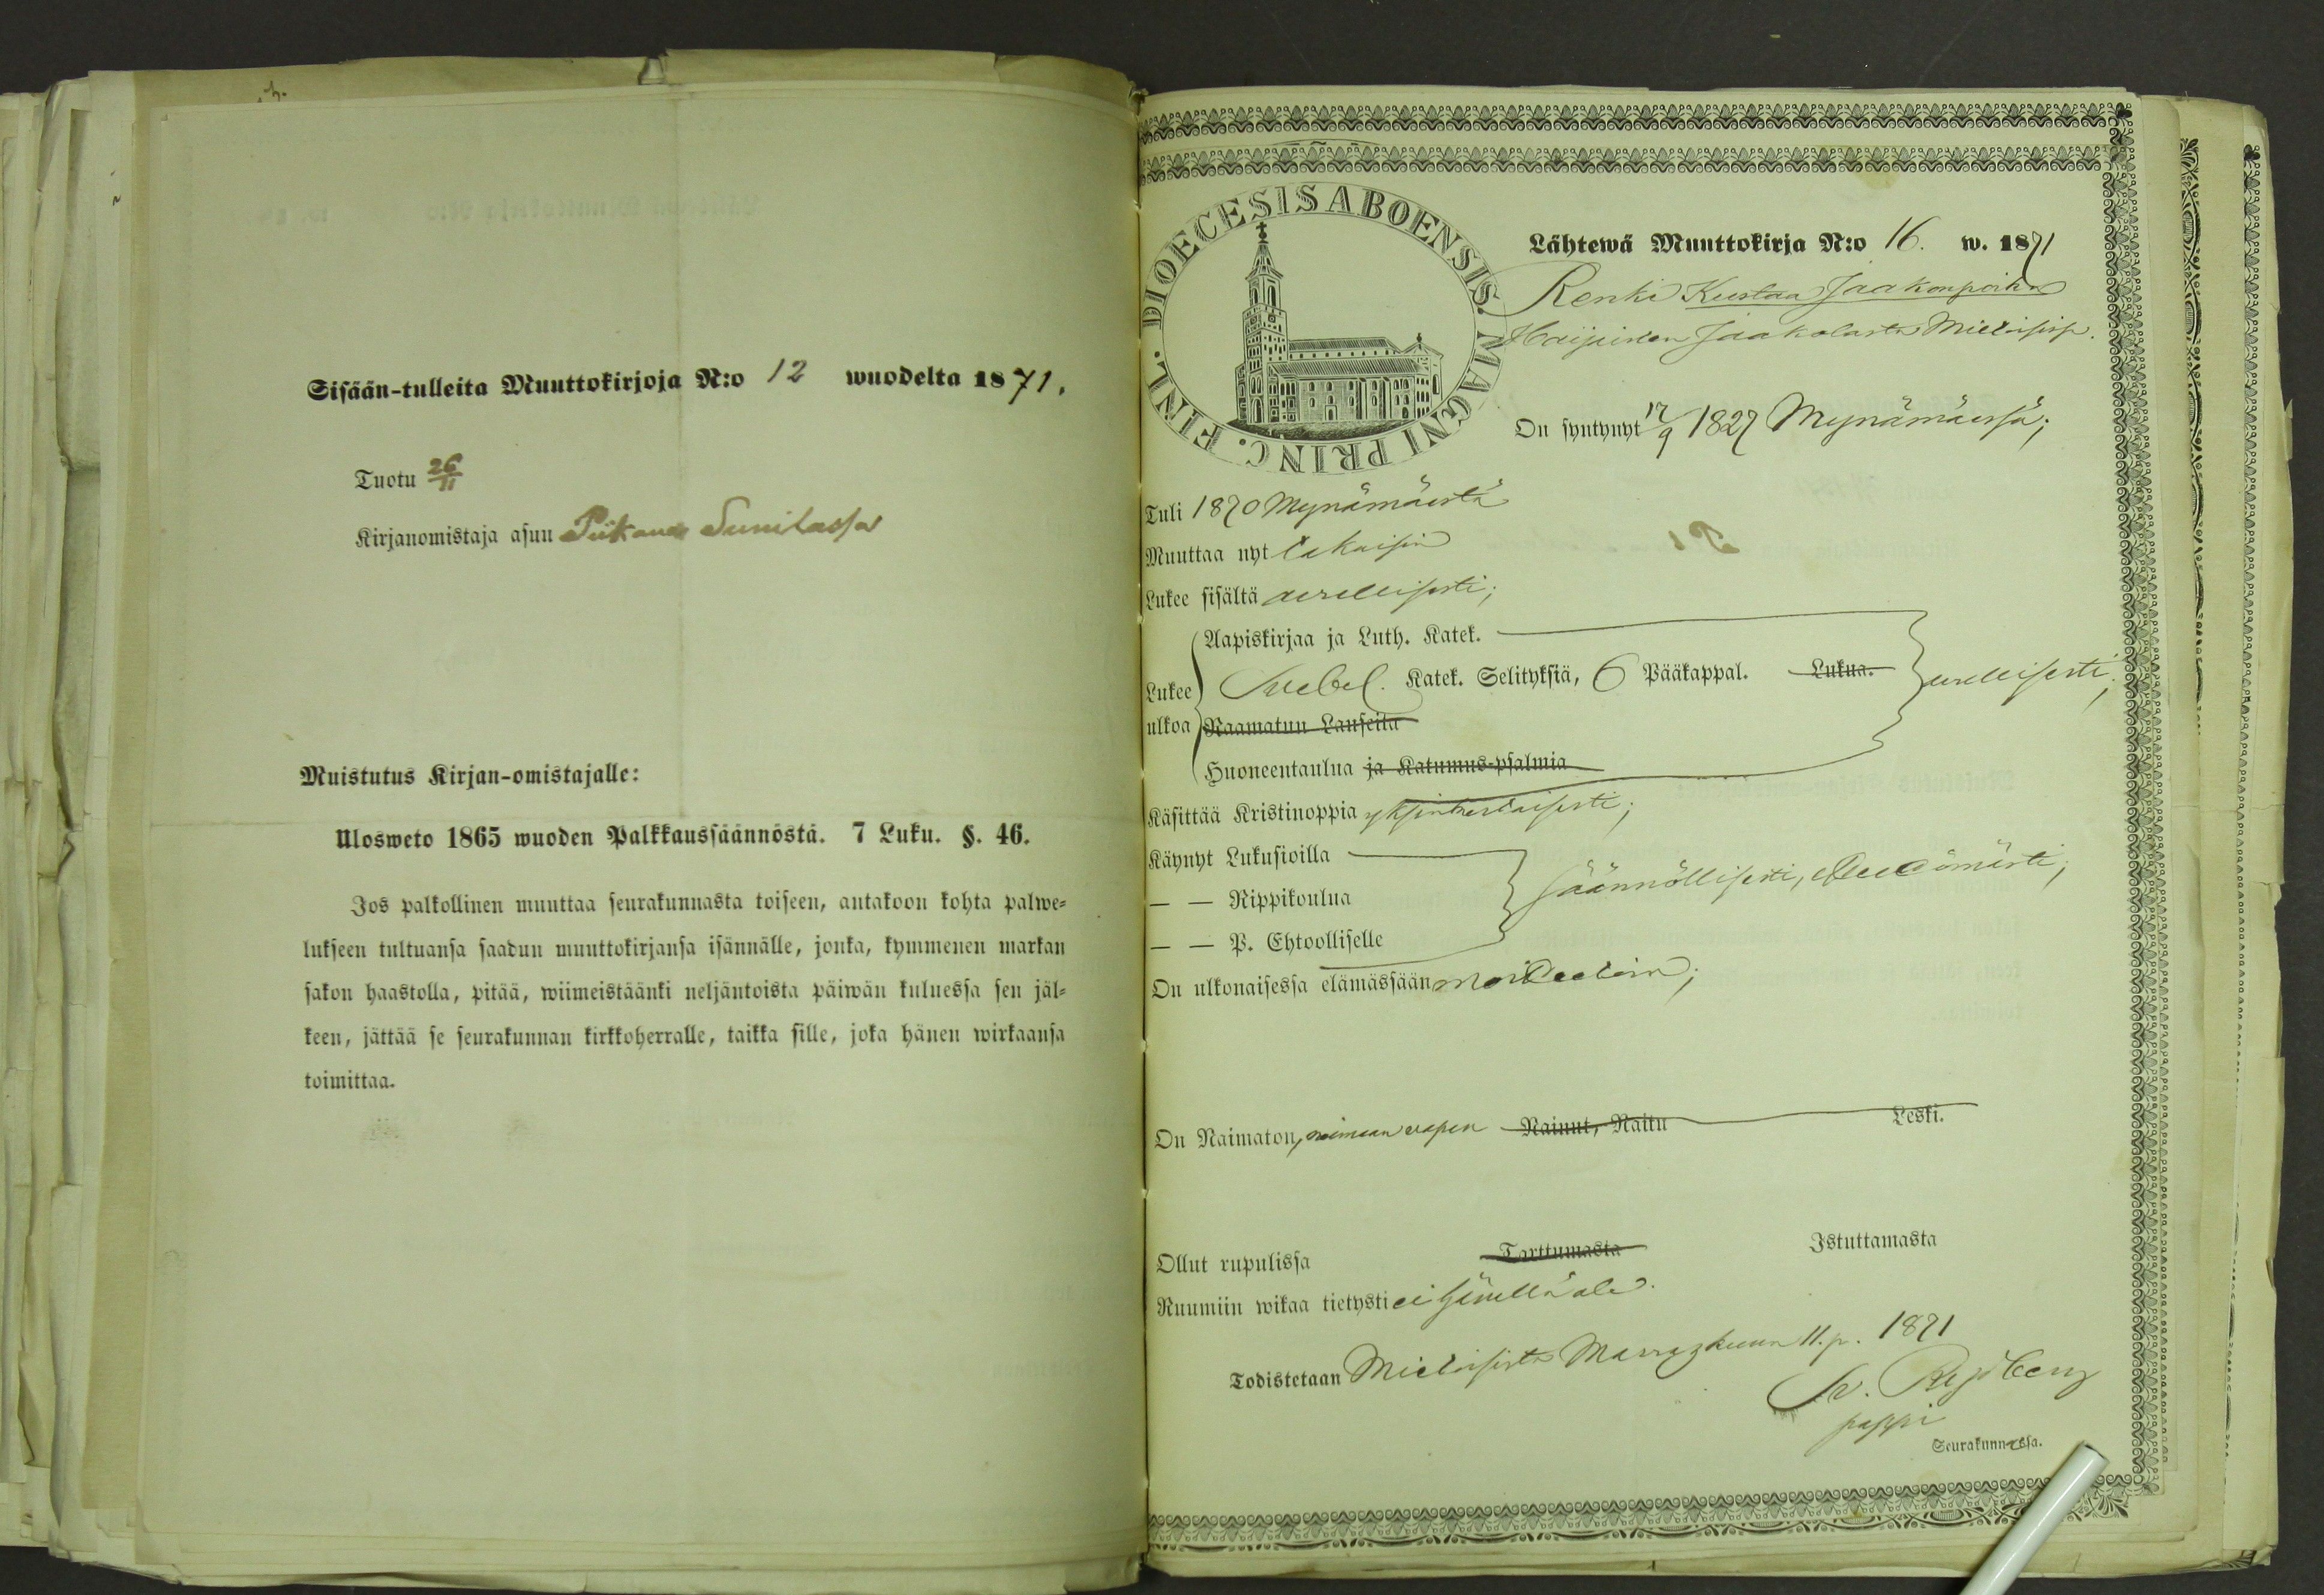 Sisään-tulleita Muuttokirjoja N:o 12 wuodelta 1871.
Tuotu 26/11
Kirjanomistaja asuu Piikana Sunilassa
Muistutus Kirjan-omistajalle:
Ulosweto 1865 wuoden Palkkaussäännöstä. 7 Luku. §. 46.
Jos palkollinen muuttaa seurakunnasta toiseen, antakoon kohta palwe-
lukseen tultuansa saadun muuttokirjansa isännälle, jonka, kymmenen markan
sakon haastolla, pitää, wiimeistäänki neljäntoista päiwän kuluessa sen jäl-
keen, jättää se seurakunnan kirkkoherralle, taikka sille, joka hänen wirkaansa
toimittaa.
DIOECESIS ABOENSIS. MAGNI PRINC. FINL.
Lähtewä Muuttokirja N:o 16. w. 1871
Renki Kustaa Jaakonpoika
Jaakolasta
On syntynyt 17/9 1827 Mynämäessä;
Tuli 1870 Mynämäestä
Muuttaa nyt takaisin
Lukee sisältä
Aapiskirjaa ja Luth. Katek.
Lukee ulkoa Svebel. Katek. Selityksiä, 6 Pääkappal. Lukua.
Raamatun Lauseita
Huoneentaulua ja Katumus-psalmia
Käsittää Kristinoppia yksinkertaisesti;
Käynyt Lukusioilla
— — Rippikoulua säännöllisesti,
— — P. Ehtoolliselle
On ulkonaisessa elämässään moitteetoin;
On Naimaton, naimaan vapaa Nainut, Naitu Leski.
Ollut rupulissa Tarttumasta Istuttamasta
Ruumiin wikaa tietysti ei hänellä ole.
Todistetaan Mietoisista Marrazkuun 11. p. 1871
pappi
Seurakunnassa.